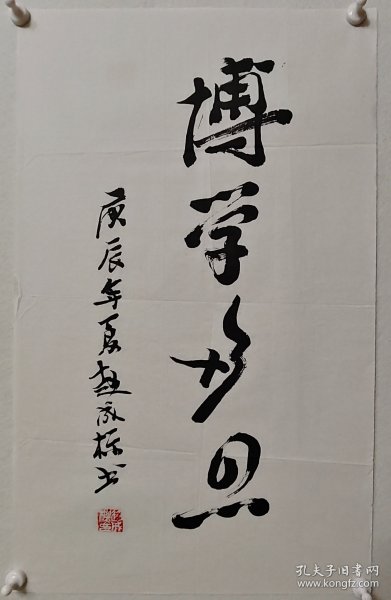 博学多思
庚辰年夏赵成标书
孔夫子旧书网
www.kongfz.com